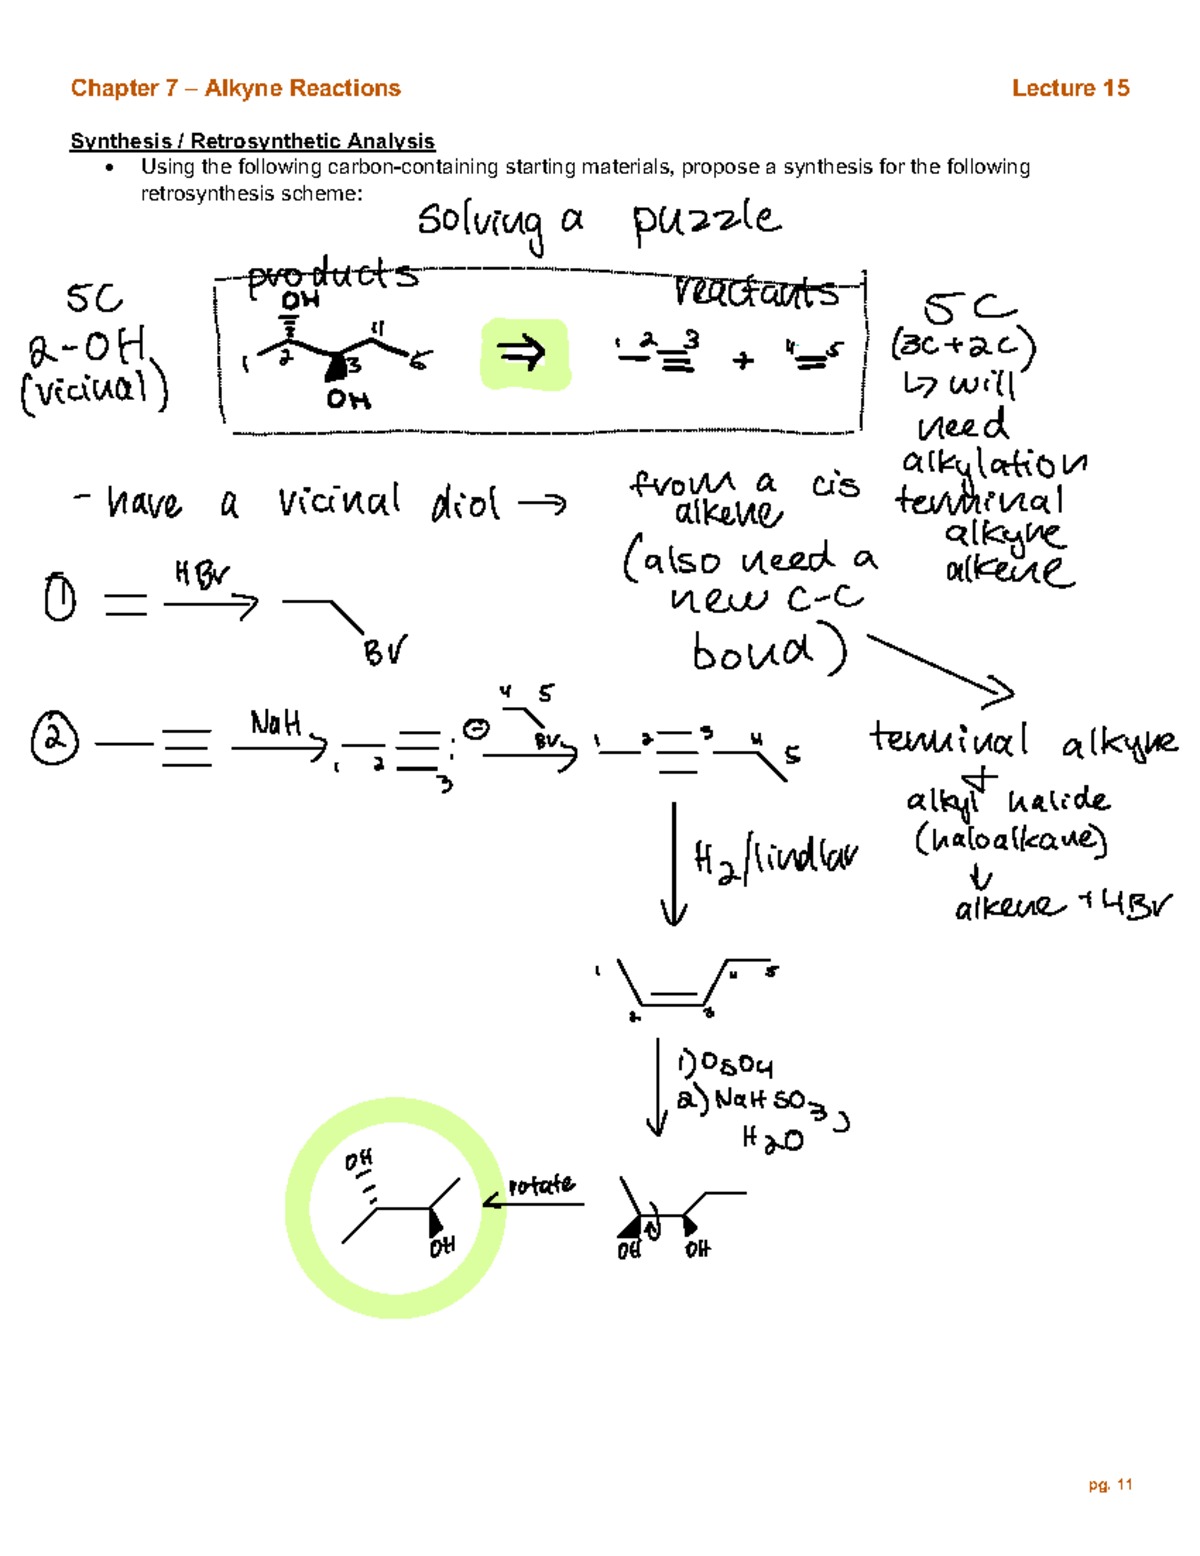 Chapter 7 – Alkyne Reactions Lecture 15
Synthesis / Retrosynthetic Analysis
• Using the following carbon-containing starting materials, propose a synthesis for the following
retrosynthesis scheme:
solving a puzzle
products reactants
5C
2-OH
(vicinal)
OH
1 2 3 4 5
OH
⇒
1 2 3 + 4 5
5C
(3C+2C)
↳ will
need
alkylation
terminal
alkyne
alkene
- have a vicinal diol →
from a cis
alkene
(also need a
new C-C
bond)
① HBr
Br
terminal alkyne
+
alkyl halide
(haloalkane)
↓
alkene + HBr
② NaH
1 2 3
⊖
4 5
Br
1 2 3 4 5
H2/lindlar
1 2 3 4 5
1) OsO4
2) NaHSO3,
H2O
OH OH
rotate
OH
OH
pg. 11